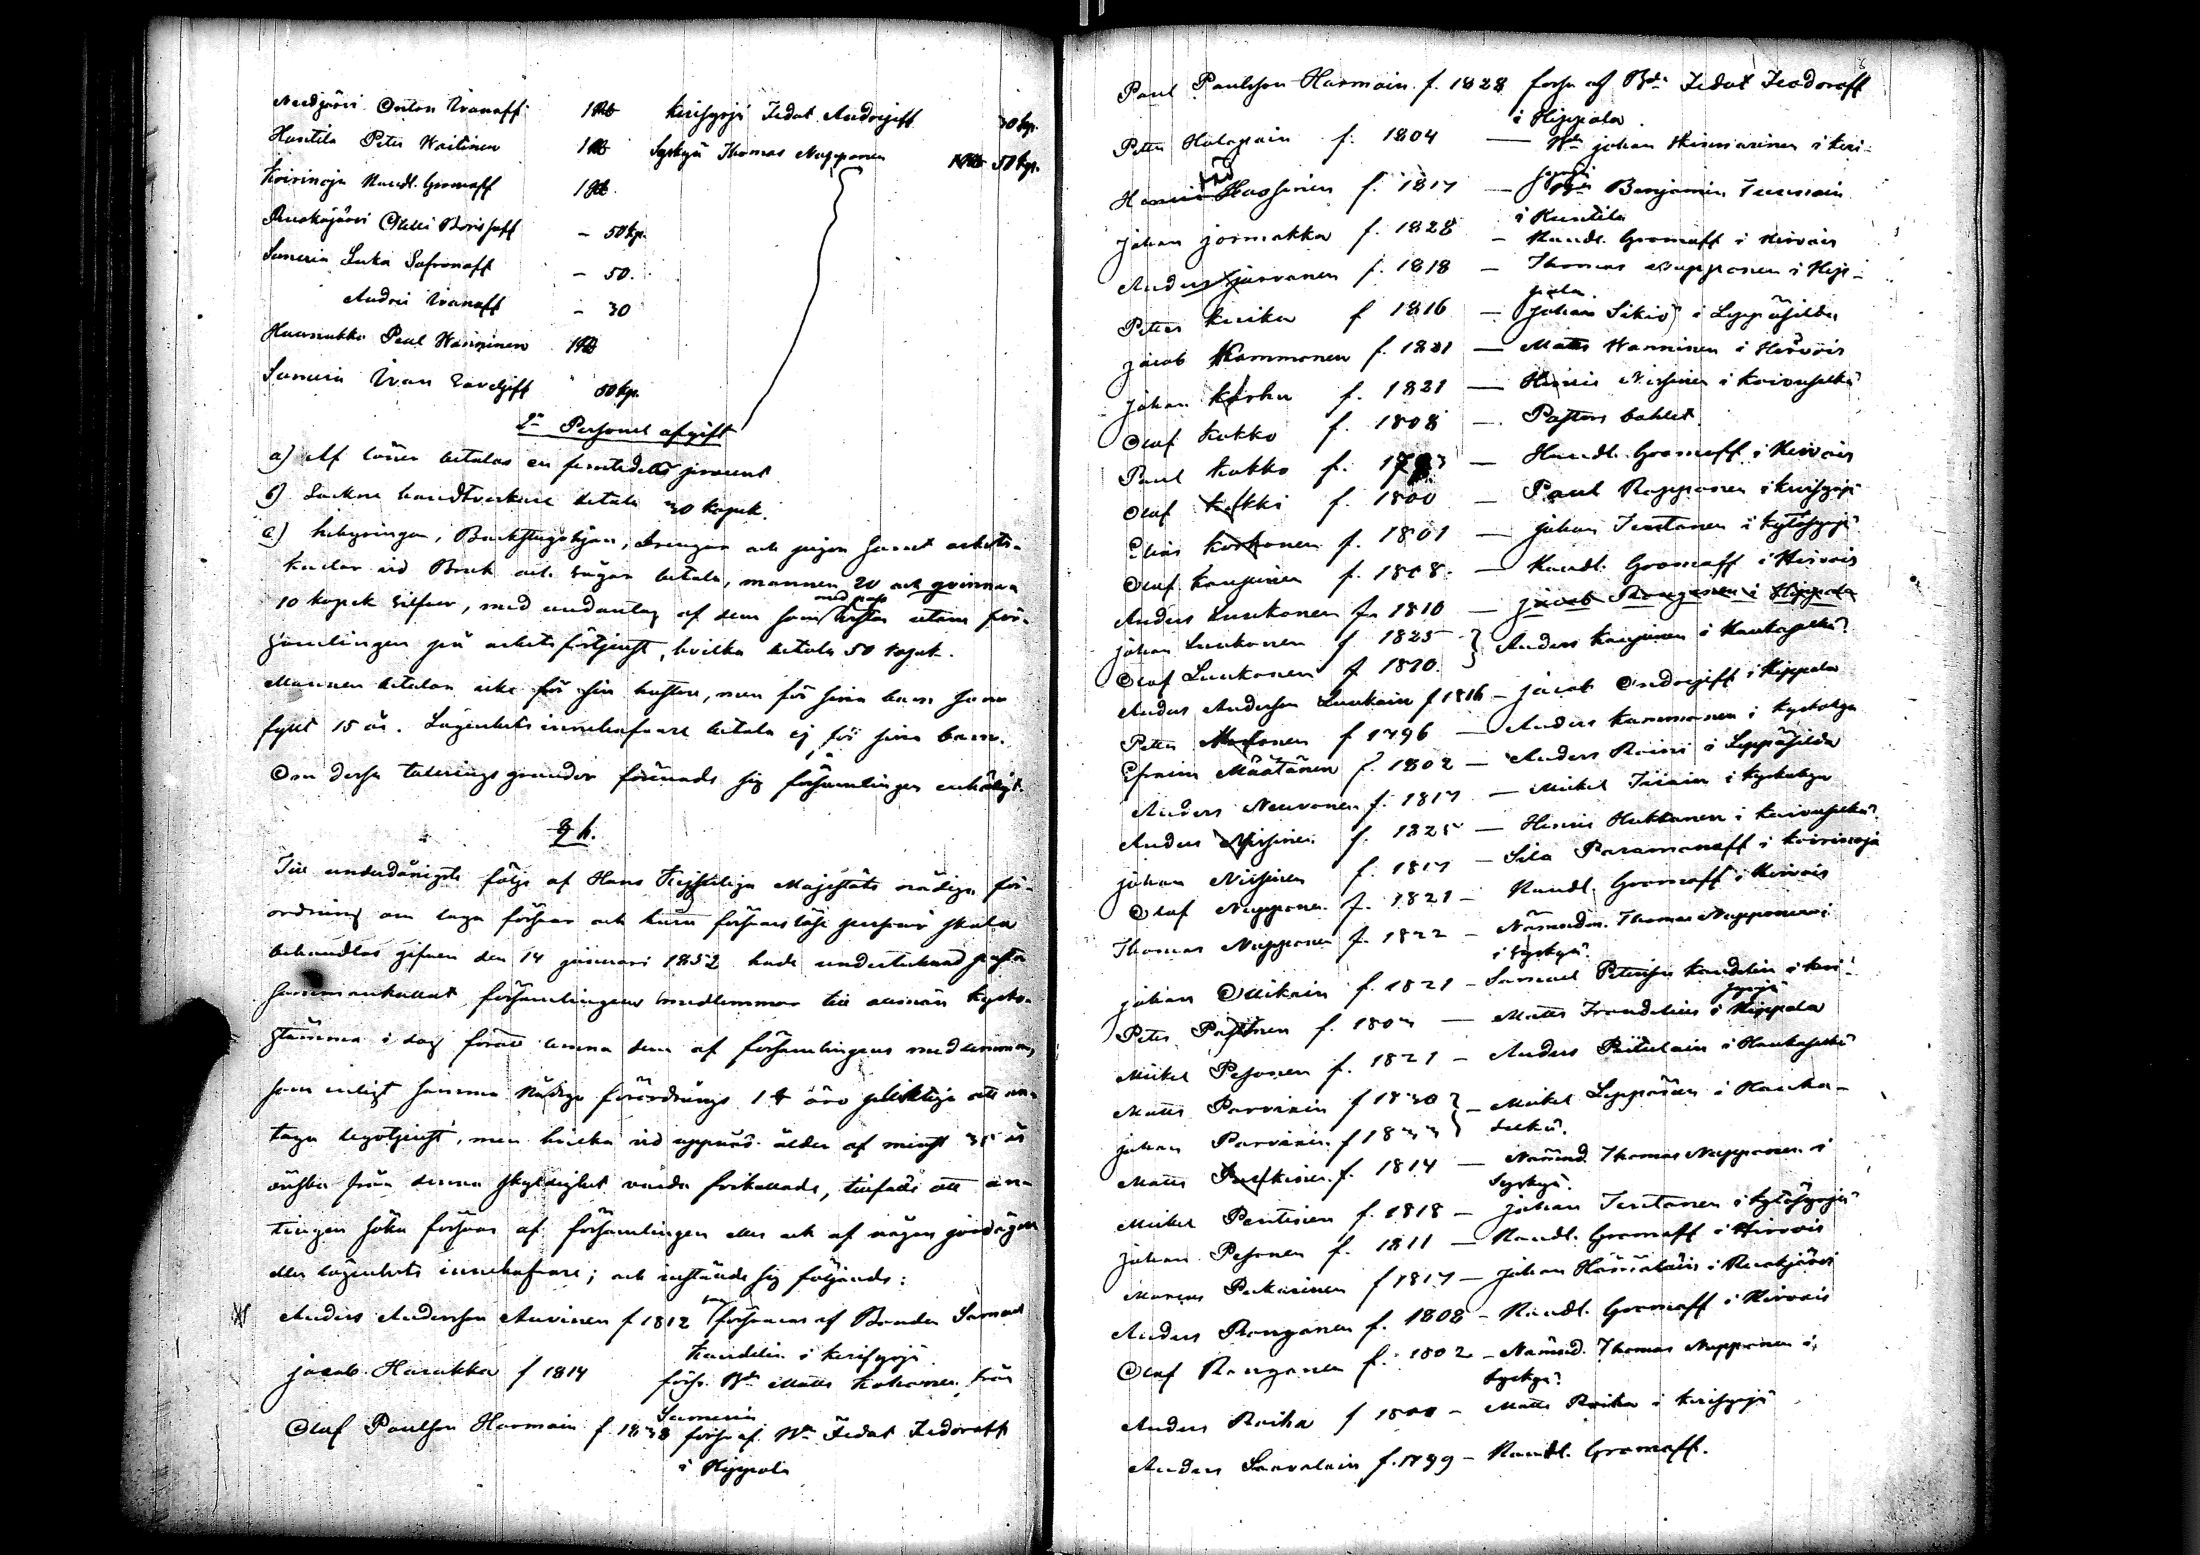 Anton Ivanoff 1 Rub Kerisyrjä Fedot Andrejeff 30 kp.
Huutila Peter Waitinen 1 Rub Syskyä Thomas Nupponen 50 kp.
Koirinoja Handl. Gromoff 1 Rub.
Ruokojärvi Borisoff - 50 kp.
Sumeria Luka Safronoff - 50.
Andrei Ivanoff - 30
Haunukka Paul Wänninen 1 Rub
Sumeria Ivan 50 kp.
2n Personel afgift
a) Af löner betalas en femtedels procent
b) Sockne handtverkare betala 30 kopek.
c) Inhysingar, Backstugohjon, Drengar och pigor samt arbets-
karlar vid Bruk och sågar betala, mannen 20 och qvinnan
10 kopek silfver, med undantag af dem som med pass vistas utom för-
samlingen på arbetsförtjenst, hvilka betala 50 kopek.
Mannen betalar icke för sin hustru, men för sina barn som
fyllt 15 år. Lägenhets innehafvare betala ej för sina barn.
Om dessa taxerings grunder förenade sig församlingen enhälligt.
§ 6.
Till underdånigste följe af Hans Kejserliga Majestäts nådiga för-
ordning om laga försvar och huru försvarslöse personer skola
behandlas gifven den 14 januari 1852 hade undertecknad pastor
sammankallat församlingens medlemmar till allmän kyrko-
stämma i dag för att lemna dem af församlingens medlemmar,
som enligt samma Nådiga förordnings 1 § äro pliktige att an-
taga legotjenst, men hvilka vid uppnåd ålder af minst 35 år
önska från denna skyldighet varda frikallade, tillfälle att an-
tingen söka försvar af församlingen eller ock af någon jordägare
eller lägenhets innehafvare; och instälde sig följande:
Anders Andersson Auvinen f 1812 försvaras af Bonden Samuel
Kandelin i Kerisyrjä
Jacob Harakka f 1814 förs. Bdn Matts Kokonen från
Sumeria
Olaf Paulsson Harmain f. 1838 förs af Bdn Fedot Fedoroff
i Hippola
Paul Paulsson Harmain f. 1828 förs af Bdn Fedot Feodoroff
i Hippola.
Peter Holopain f. 1804 — Bdn Johan i Keri-
syrjä
Hassinen f. 1817 — Bdn Benjamin
i Huutila
Johan Jormakka f. 1828 — Handl. Gromoff i Hirvois
Anders Järvänen f. 1818 — Thomas Nupponen i Hip-
pola.
Peter Kuika f 1816 — Johan Sikiö i Leppäsilda
Jacob Kammonen f. 1821 — Matts Wänninen i Hirvois
Johan f. 1821 — Henric Nissinen i Koivuselkä
Olaf Kokko f. 1808 — Pastors bohlet.
Paul Kokko f. — Handl. Gromoff i Hirvois
Olaf f. 1800 — Paul Rapponen i Kerisyrjä
Elias Korhonen f. 1801 — Johan Tenstanen i Kytösyrjä
Olaf Kaupinen f. 1808. — Handl. Gromoff i Hirvois
Anders Luukonen f. 1810 — Jacob i Hippola
Johan Luukonen f 1825 } Anders Kaupinen i Haukaselkä.
Olaf Luukonen f 1820.
Anders Andersson Luukain f 1816 — Jacob Ondrejeff i Hippola
Peter f 1796 — Anders Kammonen i
Efraim Määtänen f. 1802 — Anders i Leppäsilda
Anders Neuvonen f. 1817 — Mickel i
Anders Nissinen f. 1825 — Henric Hukkanen i Koivuselkä.
Johan Nissinen f. 1817 — Sila Paramonoff i Koirinoja
Olaf Nupponen f. 1821 — Handl. Gromoff i Hirvois
Thomas Nupponen f. 1822 — Nämndm. Thomas Nupponen
i Syskyä.
Johan Ollikain f. 1821 — Samuel Petersson Kandelin i Keri-
syrjä
Peter f. 1807 — Matts Frondelius i Hippola
Mickel Pesonen f. 1821 — Anders i Haukaselkä
Matts Parviain f 1830 } — Mickel Leppänen i Hauka-
Johan Parviain f 1833 } selkä.
Matts f. 1814 — Nämnd. Thomas Nupponen i
Syskyä.
Mickel Pentinen f. 1818 — Johan Tenstanen i Kytösyrjä
Johan Pesonen f. 1811 — Handl. Gromoff i Hirvois
Marcus Pekarinen f 1817 — Johan Hämäläin i Ruokjärvi
Anders Ronganen f. 1808 — Handl. Gromoff i Hirvois
Olaf Ronganen f. 1802 — Nämnd. Thomas Nupponen i
Syskyä.
Anders Roika f 1800 — Matts Roika i Kerisyrjä
Anders Saavalain f. 1799 — Handl. Gromoff.